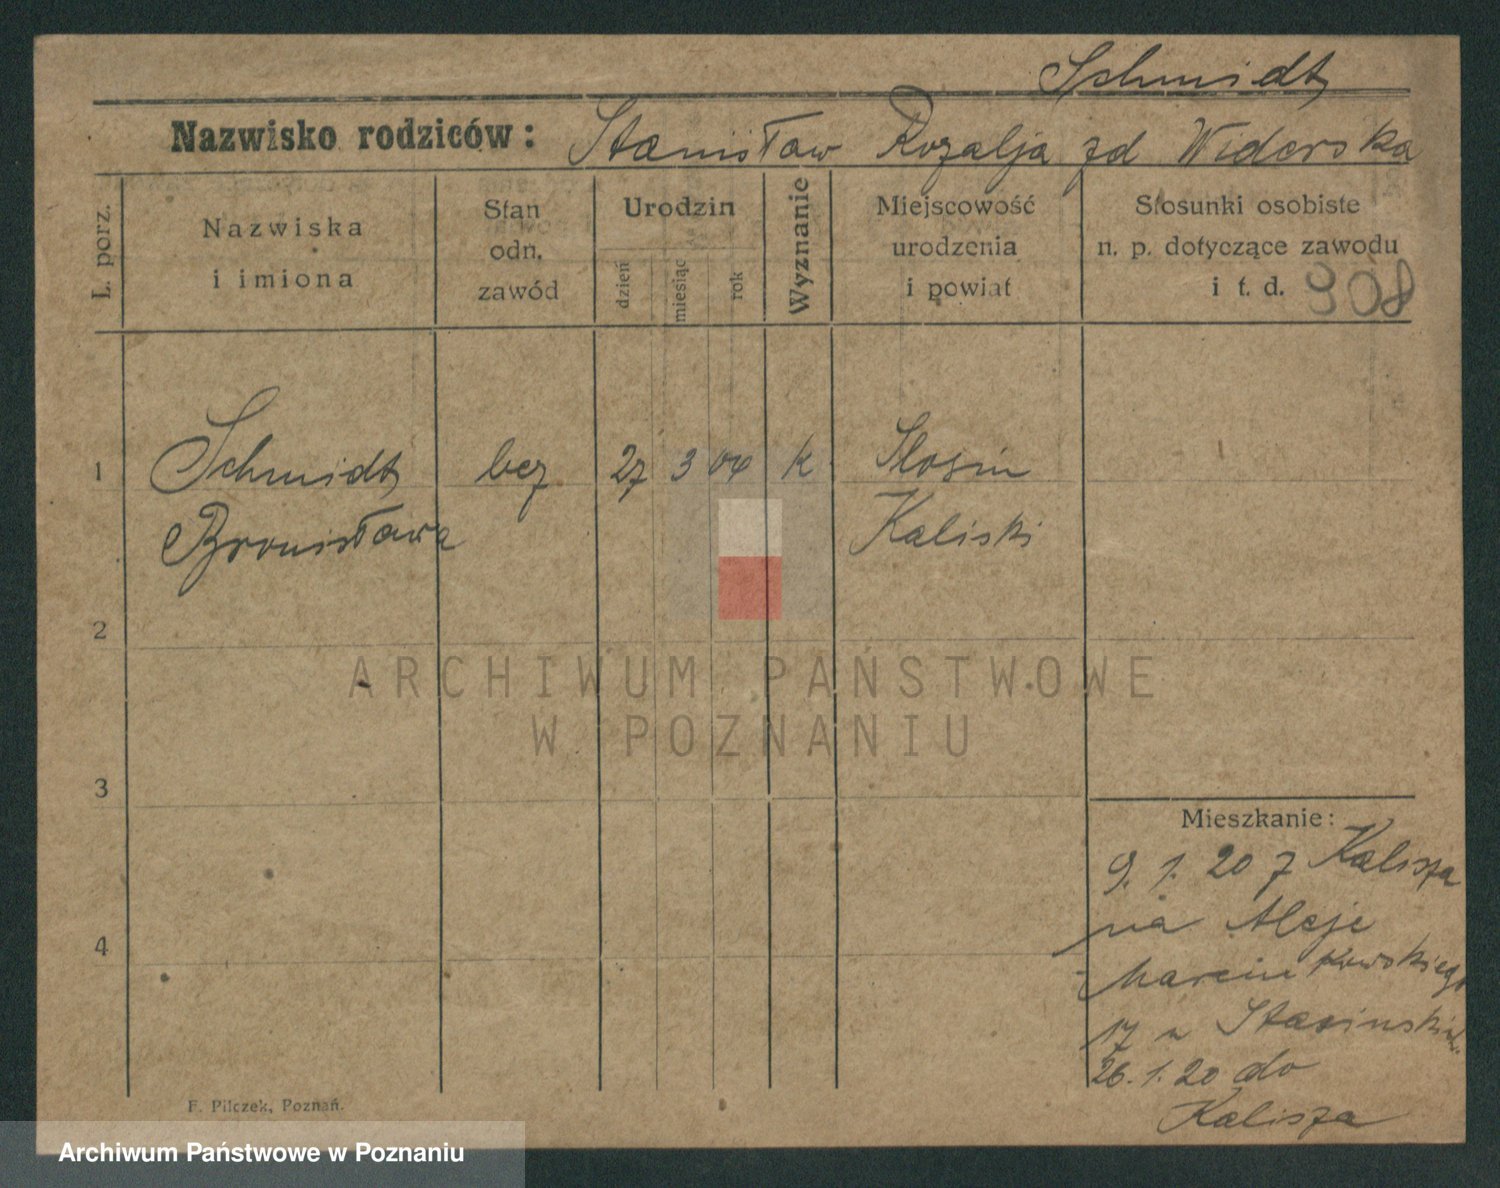 Schmidt
Nazwisko rodziców: Stanisław Rozalja zd Widerska
L. porz.
Nazwiska
i imiona
Stan
odn.
zawód
Urodzin
dzień
miesiąc
rok
Wyznanie
Miejscowość
urodzenia
i powiat
Stosunki osobiste
n. p. dotyczące zawodu
i t. d. 908
1 Schmidt bez 27 3 04 k
Bronisława Kaliski
2
3
4
Mieszkanie:
9. 1. 20 z Kalisza
na Aleje
Marcinkowskiego
17 u
26. 1. 20 do
Kalisza
F. Pilczek, Poznań.
ARCHIWUM PAŃSTWOWE
W POZNANIU
Archiwum Państwowe w Poznaniu